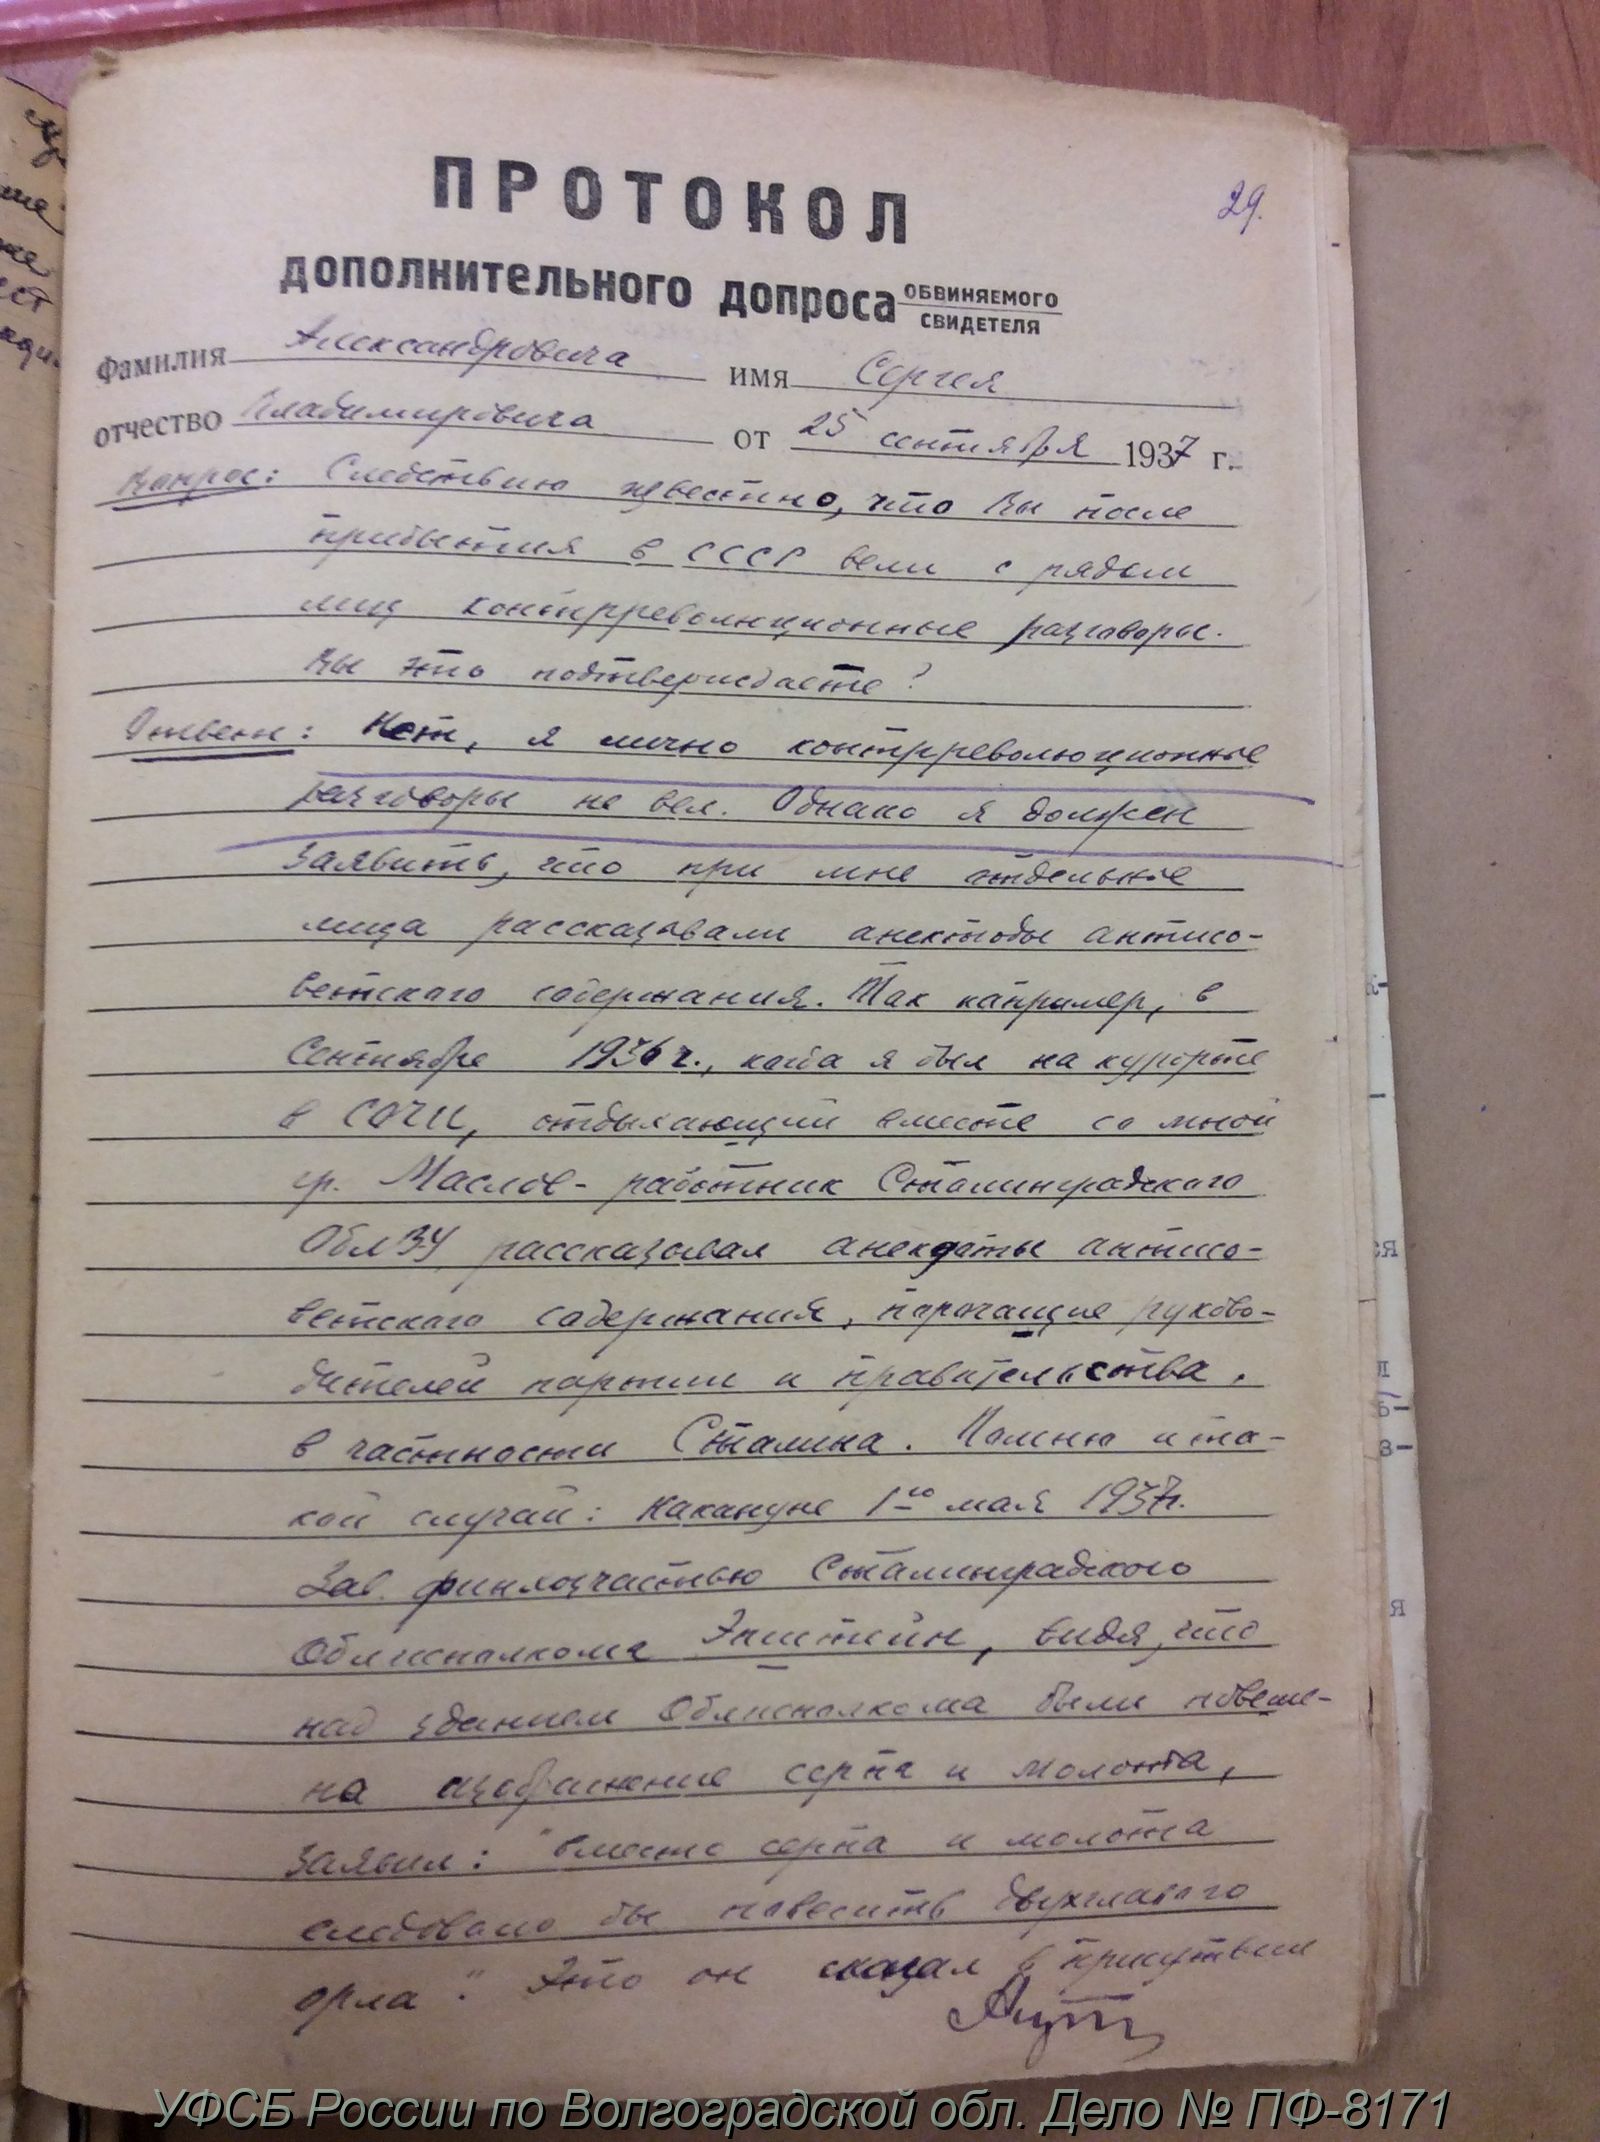 29.
ПРОТОКОЛ
дополнительного допроса обвиняемого
свидетеля
Фамилия Александровича имя Сергея
отчество Владимировича от 25 сентября 1937 г.
Вопрос: Следствию известно, что Вы после
прибытия в СССР вели с рядом
лиц контрреволюционные разговоры.
Вы это подтверждаете?
Ответ: Нет, я лично контрреволюционные
разговоры не вел. Однако я должен
заявить, что при мне отдельные
лица рассказывали анекдоты антисо-
ветского содержания. Так например, в
Сентябре 1936 г., когда я был на курорте
в СОЧИ, отдыхающий вместе со мной
гр. Маслов - работник Сталинградского
ОблЗУ рассказывал анекдоты антисо-
ветского содержания, порочащие руково-
дителей партии и правительства,
в частности Сталина. Помню и та-
кой случай: накануне 1го мая 1937г.
Зав. финхозчастью Сталинградского
Облисполкома Эпштейн, видя, что
над зданием Облисполкома были повеше-
на изображение серпа и молота,
заявил: "вместо серпа и молота
следовало бы повесить двухглавого
орла". Это он сказал в присутствии
УФСБ России по Волгоградской обл. Дело № ПФ-8171